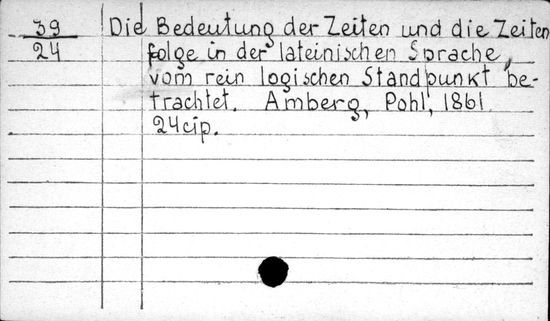 39 Die Bedeutung der Zeiten und die Zeiten
24 folge in der lateinischen Sprache,
vom rein logischen Standpunkt be-
trachtet. Amberg, Pohl, 1861
24cip.